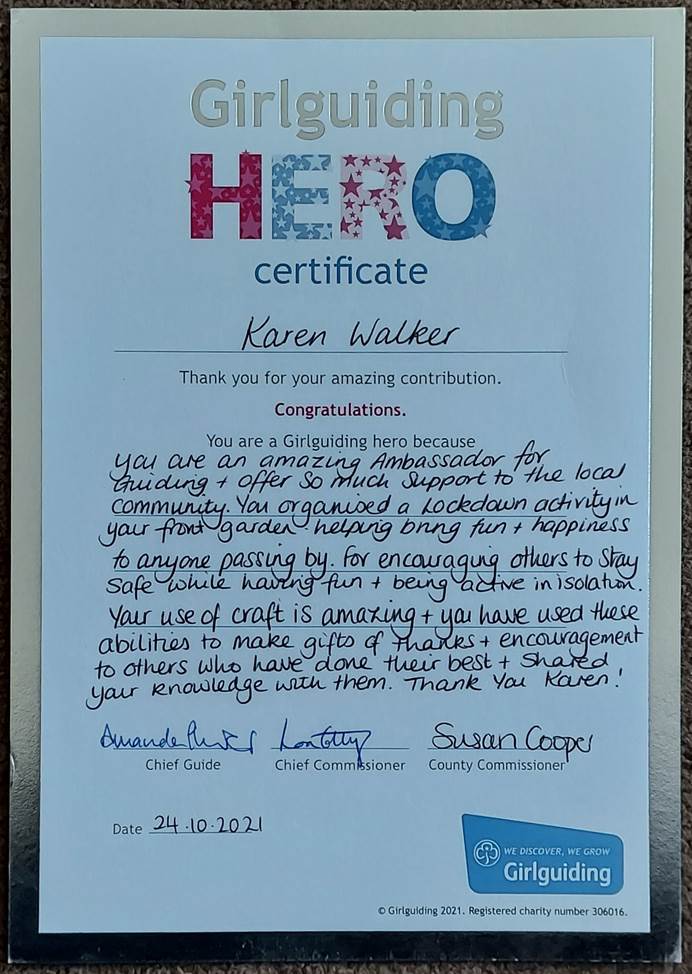 Girlguiding
HERO
certificate
Karen Walker
Thank you for your amazing contribution.
Congratulations.
You are a Girlguiding hero because
you are an amazing Ambassador for
Guiding + offer so much support to the local
community. You organised a Lockdown activity in
your front garden helping bring fun + happiness
to anyone passing by. For encouraging others to stay
safe while having fun + being active in isolation.
Your use of craft is amazing + you have used these
abilities to make gifts of thanks + encouragement
to others who have done their best + shared
your knowledge with them. Thank You Karen!
Amanda Susan Cooper
Chief Guide Chief Commissioner County Commissioner
Date 24.10.2021
WE DISCOVER, WE GROW
Girlguiding
© Girlguiding 2021. Registered charity number 306016.